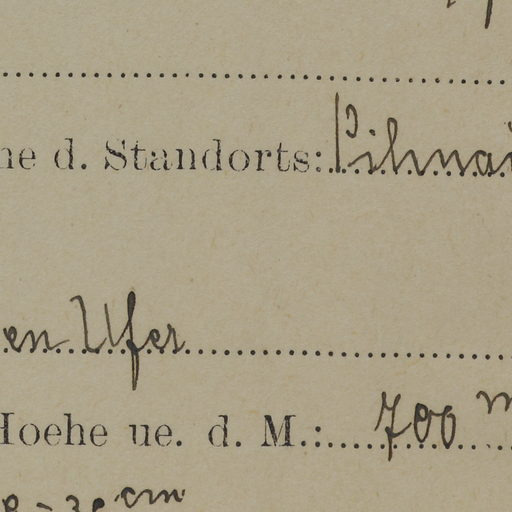 ne d. Standorts: Pihnai
en Ufer
Hoehe ue. d. M.: 700 m
cm